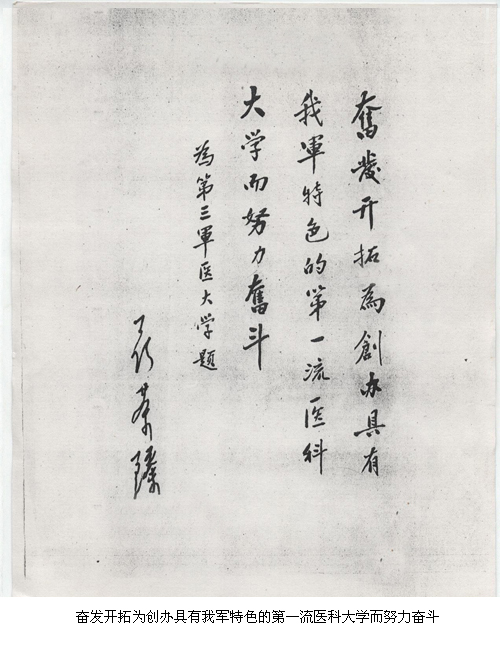 奮發开拓為創办具有
我軍特色的第一流医科
大学而努力奮斗
為第三軍医大学題
聂荣臻
奋发开拓为创办具有我军特色的第一流医科大学而努力奋斗